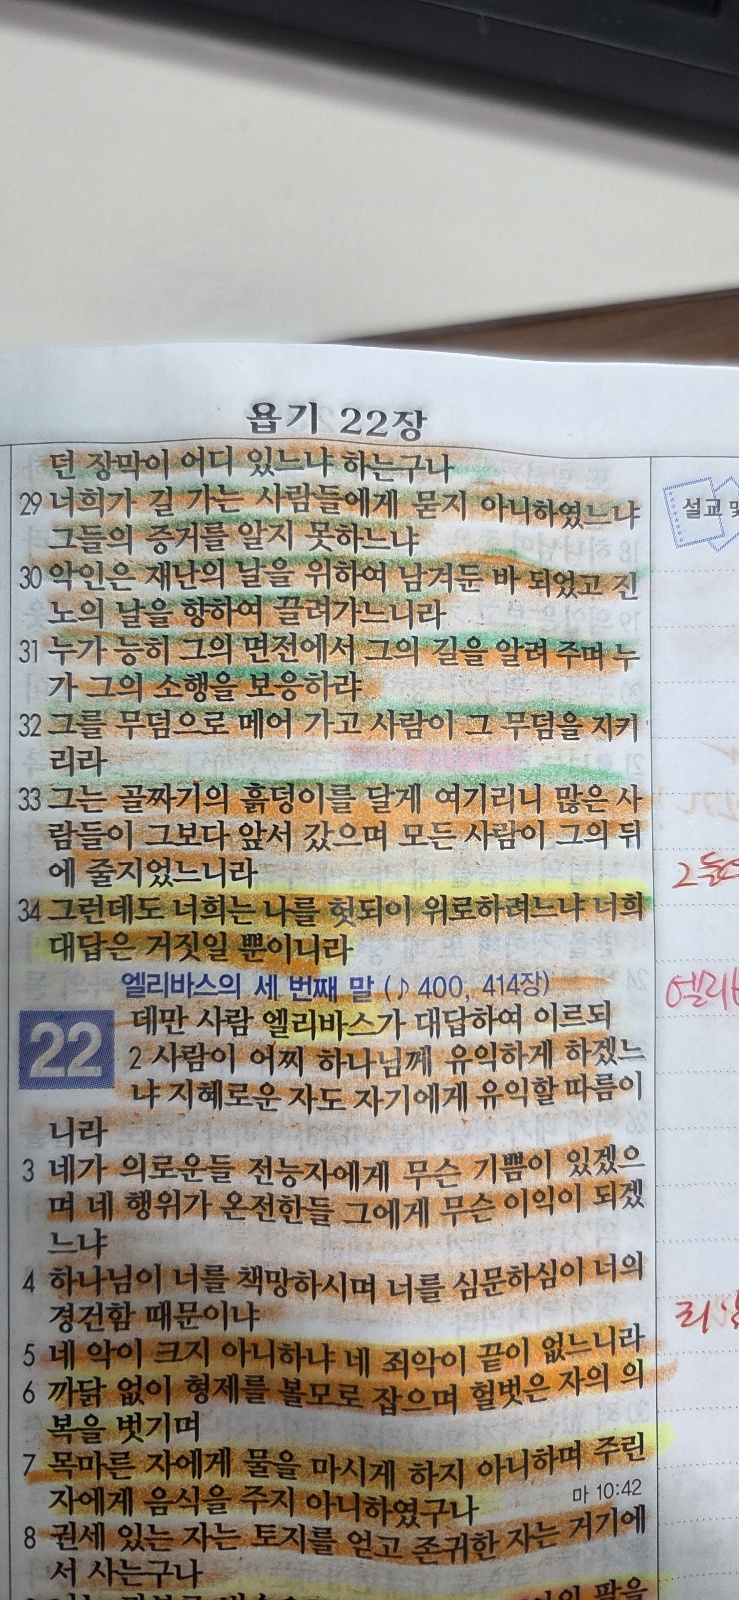 욥기 22장
던 장막이 어디 있느냐 하는구나
29 너희가 길 가는 사람들에게 묻지 아니하였느냐
그들의 증거를 알지 못하느냐
30 악인은 재난의 날을 위하여 남겨둔 바 되었고 진
노의 날을 향하여 끌려가느니라
31 누가 능히 그의 면전에서 그의 길을 알려 주며 누
가 그의 소행을 보응하랴
32 그를 무덤으로 메어 가고 사람이 그 무덤을 지키
리라
33 그는 골짜기의 흙덩이를 달게 여기리니 많은 사
람들이 그보다 앞서 갔으며 모든 사람이 그의 뒤
에 줄지었느니라
34 그런데도 너희는 나를 헛되이 위로하려느냐 너희
대답은 거짓일 뿐이니라
엘리바스의 세 번째 말 (♪ 400, 414장)
22 데만 사람 엘리바스가 대답하여 이르되
2 사람이 어찌 하나님께 유익하게 하겠느
냐 지혜로운 자도 자기에게 유익할 따름이
니라
3 네가 의로운들 전능자에게 무슨 기쁨이 있겠으
며 네 행위가 온전한들 그에게 무슨 이익이 되겠
느냐
4 하나님이 너를 책망하시며 너를 심문하심이 너의
경건함 때문이냐
5 네 악이 크지 아니하냐 네 죄악이 끝이 없느니라
6 까닭 없이 형제를 볼모로 잡으며 헐벗은 자의 의
복을 벗기며
7 목마른 자에게 물을 마시게 하지 아니하며 주린
자에게 음식을 주지 아니하였구나
마 10:42
8 권세 있는 자는 토지를 얻고 존귀한 자는 거기에
서 사는구나
설교 및